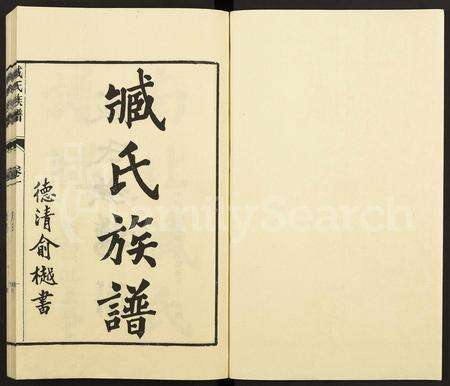 臧氏族譜
德清俞樾書
臧氏族譜
卷
FamilySearch